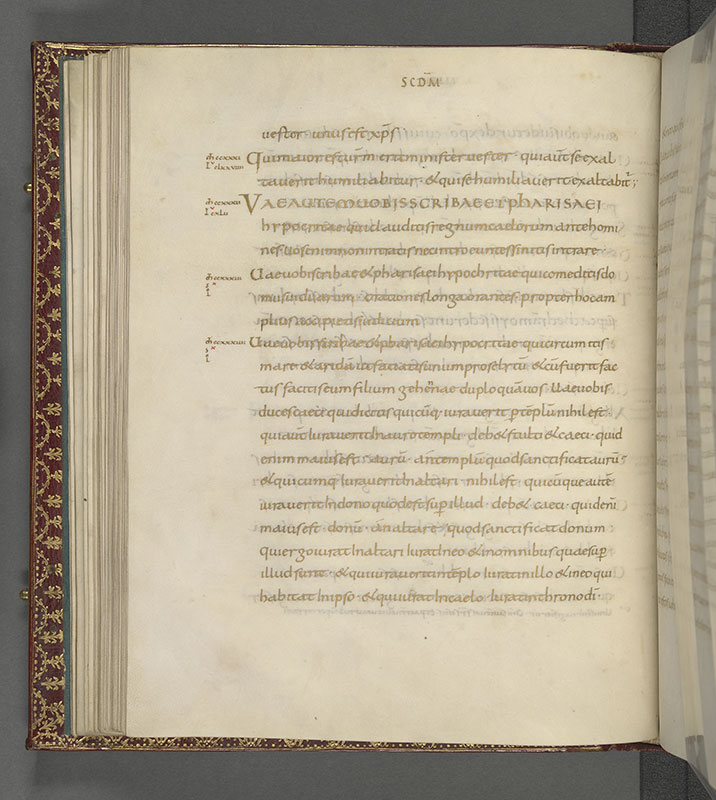 SCDM̄
uester unus est xp̄s
m̄ ccxxxi
l clxxviiii
Qui maior est ur̄m erit minister uester · quiaut̄ se exal
tauerit humiliabitur · & qui se humiliauerit exaltabit̄ ;
m̄ ccxxxii
l cxlii
VAE AUTEM UOBIS SCRIBAE ET PHARISAEI
hypocritae qui clauditis regnum caelorum ante homi
nes · Uos enim non intratis nec introeuntes sinitis intrare ·
m̄ ccxxxiii
Uae uobis scribae & pharisaei hypochritae qui comeditis do
mus uiduarum · orationes longa orantes · propter hoc am
plius accipietis iudicium ·
m̄ ccxxxiiii
Uae uobis scribae & pharisaei hypocritae qui circumitis
mare & aridā ut faciatis unum proselytū · & cū fuerit fac
tus facitis eum filium gehennae duplo quā uos · Uae uobis
duces caeci qui dicitis quicūq; iurauerit per tēplū nihil est ·
qui aut̄ iurauerit In auro templi · deb& stulti & caeci · quid
enim maius est · aurū · an templū quod sanctificat aurū ·
& quicumq; Iurauerit In altari · nihil est · quicūque autē
iurauerit In dono quod est sup̄ illud · deb& · caeci · quid enī
maius est · donū · an altare · quod sanctificat donum
qui ergo iurat In altari Iurat In eo & in omnibus quae sup̄
illud sunt · & qui iurauerit in tēplo Iurat in illo & in eo qui
habitat In ipso · & qui iurat In caelo Iurat in throno dī ·